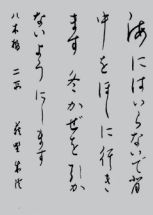 海にはいらないで背
中をほしに行き
ます 冬かぜを引か
ないようにします
八木橋 二